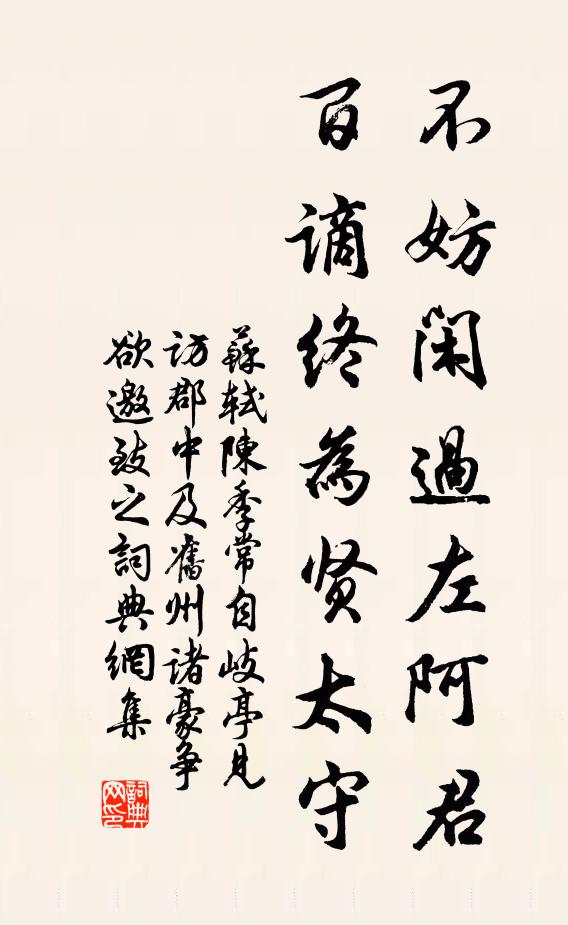 不妨闲過左阿君
百谪终為贤太守
蘇軾陳季常自岐亭見
访郡中及舊州諸豪争
欲邀致之詞典網集
詞典网印